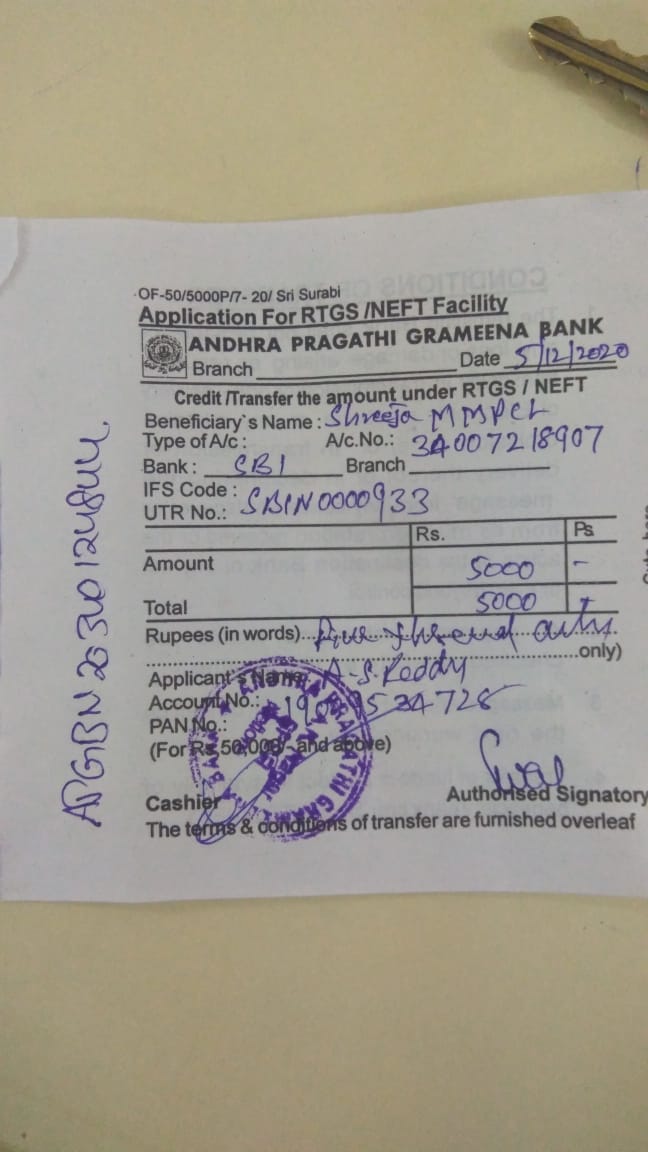 OF-50/5000P/7- 20/ Sri Surabi
Application For RTGS /NEFT Facility
ANDHRA PRAGATHI GRAMEENA BANK
Branch Date 5/12/2020
Credit /Transfer the amount under RTGS / NEFT
Beneficiary`s Name : Shreeja MMPCL
Type of A/c : A/c.No.: 34007218907
Bank : SBI Branch
IFS Code :
UTR No.: SBIN0000933
Rs. Ps
Amount 5000 -
Total 5000
Rupees (in words)... Five
only)
Applicant`s Name A-S.Reddy
Account No.: 34728
PAN No.:
(For Rs.50,000/- and above)
Cashier Authorised Signatory
The terms & conditions of transfer are furnished overleaf
ANDHRA PRAGATHI